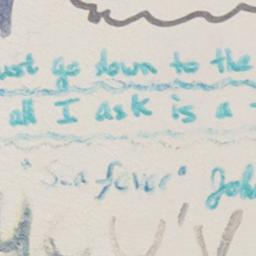 ust go down to the
all I ask is a
"Sea fever" Joh